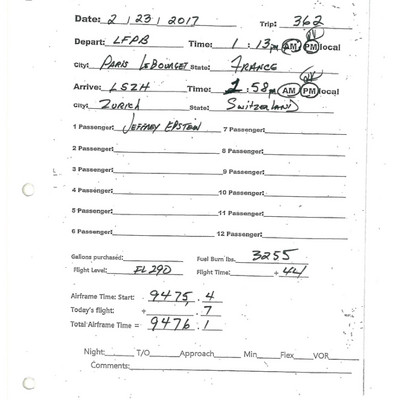 Date: 2 / 23 / 2017 Trip: 362
Depart: LFPB Time: 1 : 13pm AM PM local
City: PARIS LEBOURGET State: FRANCE
Arrive: LSZH Time: 1 : 58pm AM PM local
City: ZURICH State: SWITZERLAND
1 Passenger: JEFFREY EPSTEIN 7 Passenger:
2 Passenger: 8 Passenger:
3 Passenger: 9 Passenger:
4 Passenger: 10 Passenger:
5 Passenger: 11 Passenger:
6 Passenger: 12 Passenger:
Gallons purchased: Fuel Burn lbs. 3255
Flight Level: FL290 Flight Time: + 44
Airframe Time: Start: 9475 . 4
Today's flight: + . 7
Total Airframe Time = 9476 . 1
Night: T/O Approach Min Flex VOR
Comments: